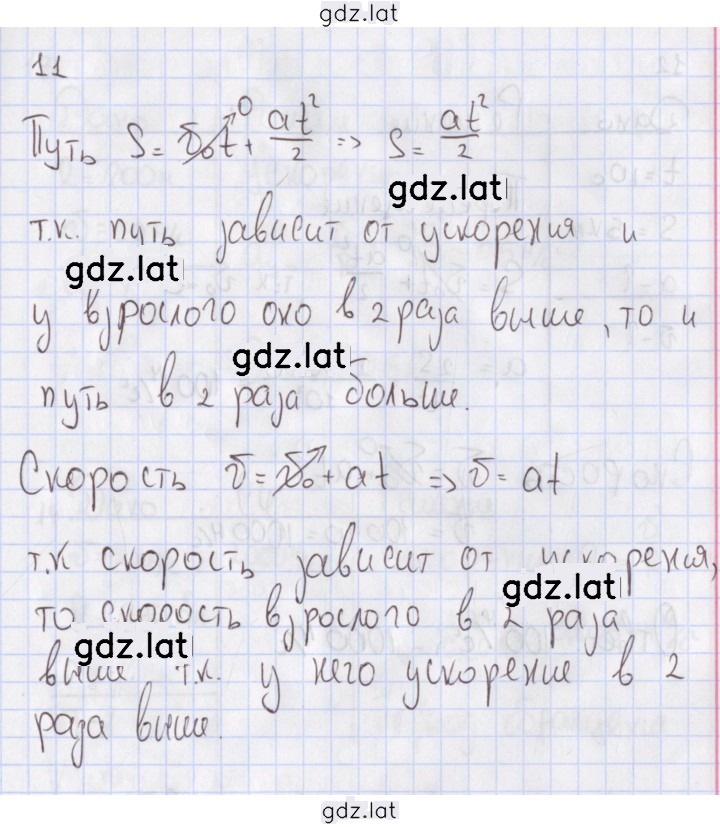 gdz.lat
11
Путь S = v₀t⁰ + at²/2 => S = at²/2
gdz.lat
т.к. путь зависит от ускорения и
gdz.lat
у взрослого оно в 2 раза выше, то и
gdz.lat
путь в 2 раза больше.
Скорость v = v₀ + at => v = at
т.к скорость зависит от ускорения,
gdz.lat
то скорость взрослого в 2 раза
gdz.lat
выше т.к. у него ускорение в 2
раза выше.
gdz.lat